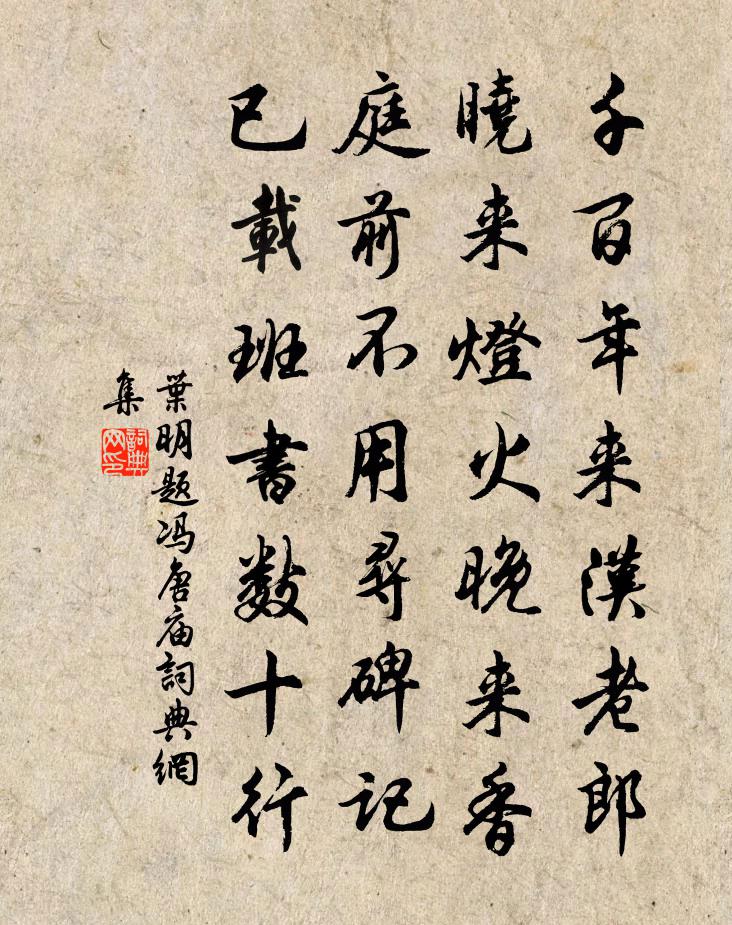 千百年来漢老郎
曉来燈火晚来香
庭前不用尋碑記
已載班書數十行
葉明題冯唐庙詞典網
集
詞典
网印